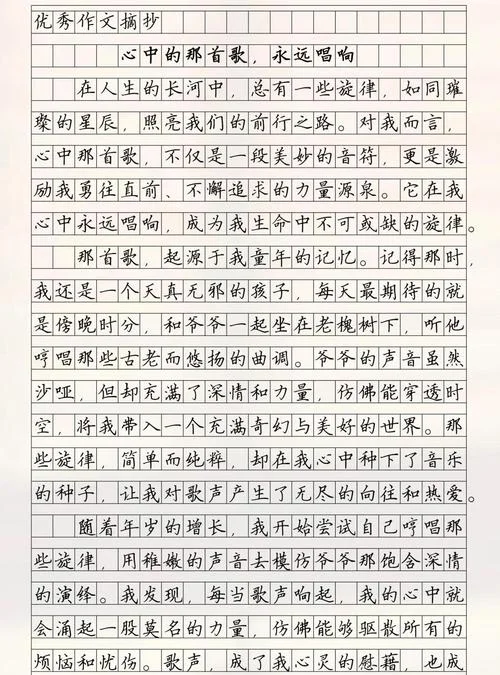 优秀作文摘抄
心中的那首歌，永远唱响
在人生的长河中，总有一些旋律，如同璀
璨的星辰，照亮我们的前行之路。对我而言，
心中那首歌，不仅是一段美妙的音符，更是激
励我勇往直前、不懈追求的力量源泉。它在我
心中永远唱响，成为我生命中不可或缺的旋律。
那首歌，起源于我童年的记忆。记得那时，
我还是一个天真无邪的孩子，每天最期待的就
是傍晚时分，和爷爷一起坐在老槐树下，听他
哼唱那些古老而悠扬的曲调。爷爷的声音虽然
沙哑，但却充满了深情和力量，仿佛能穿透时
空，将我带入一个充满奇幻与美好的世界。那
些旋律，简单而纯粹，却在我心中种下了音乐
的种子，让我对歌声产生了无尽的向往和热爱。
随着年岁的增长，我开始尝试自己哼唱那
些旋律，用稚嫩的声音去模仿爷爷那饱含深情
的演绎。我发现，每当歌声响起，我的心中就
会涌起一股莫名的力量，仿佛能够驱散所有的
烦恼和忧伤。歌声，成了我心灵的慰藉，也成